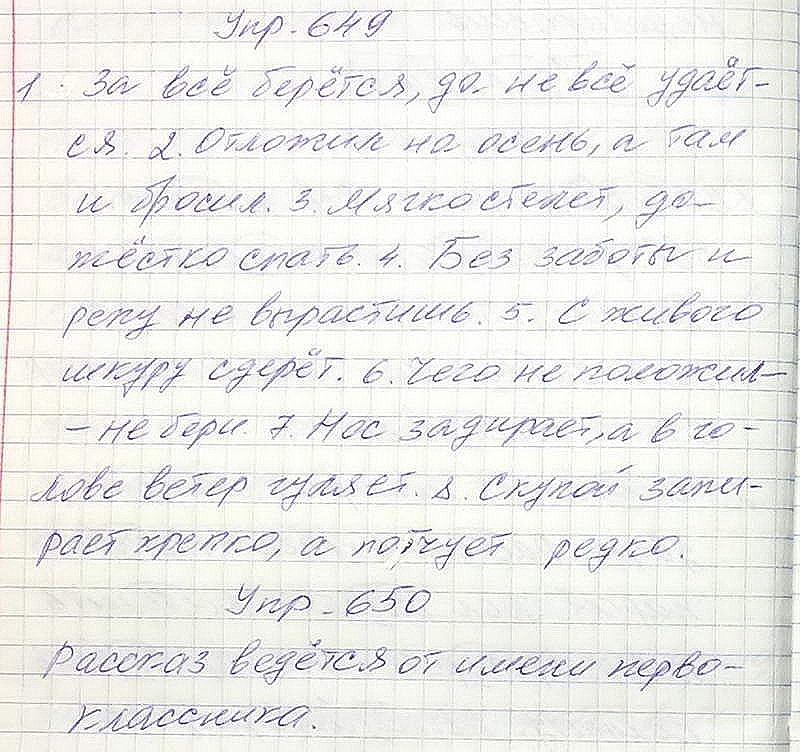 Упр. 649
1. За всё берётся, да не всё удаёт-
ся. 2. Отложил на осень, а там
и бросил. 3. Мягко стелет, да
жёстко спать. 4. Без заботы и
репу не вырастишь. 5. С живого
шкуру сдерёт. 6. Чего не положил –
– не бери. 7. Нос задирает, а в го-
лове ветер гуляет. 8. Скупой запи-
рает крепко, а потчует редко.
Упр. 650
Рассказ ведётся от имени перво-
классника.